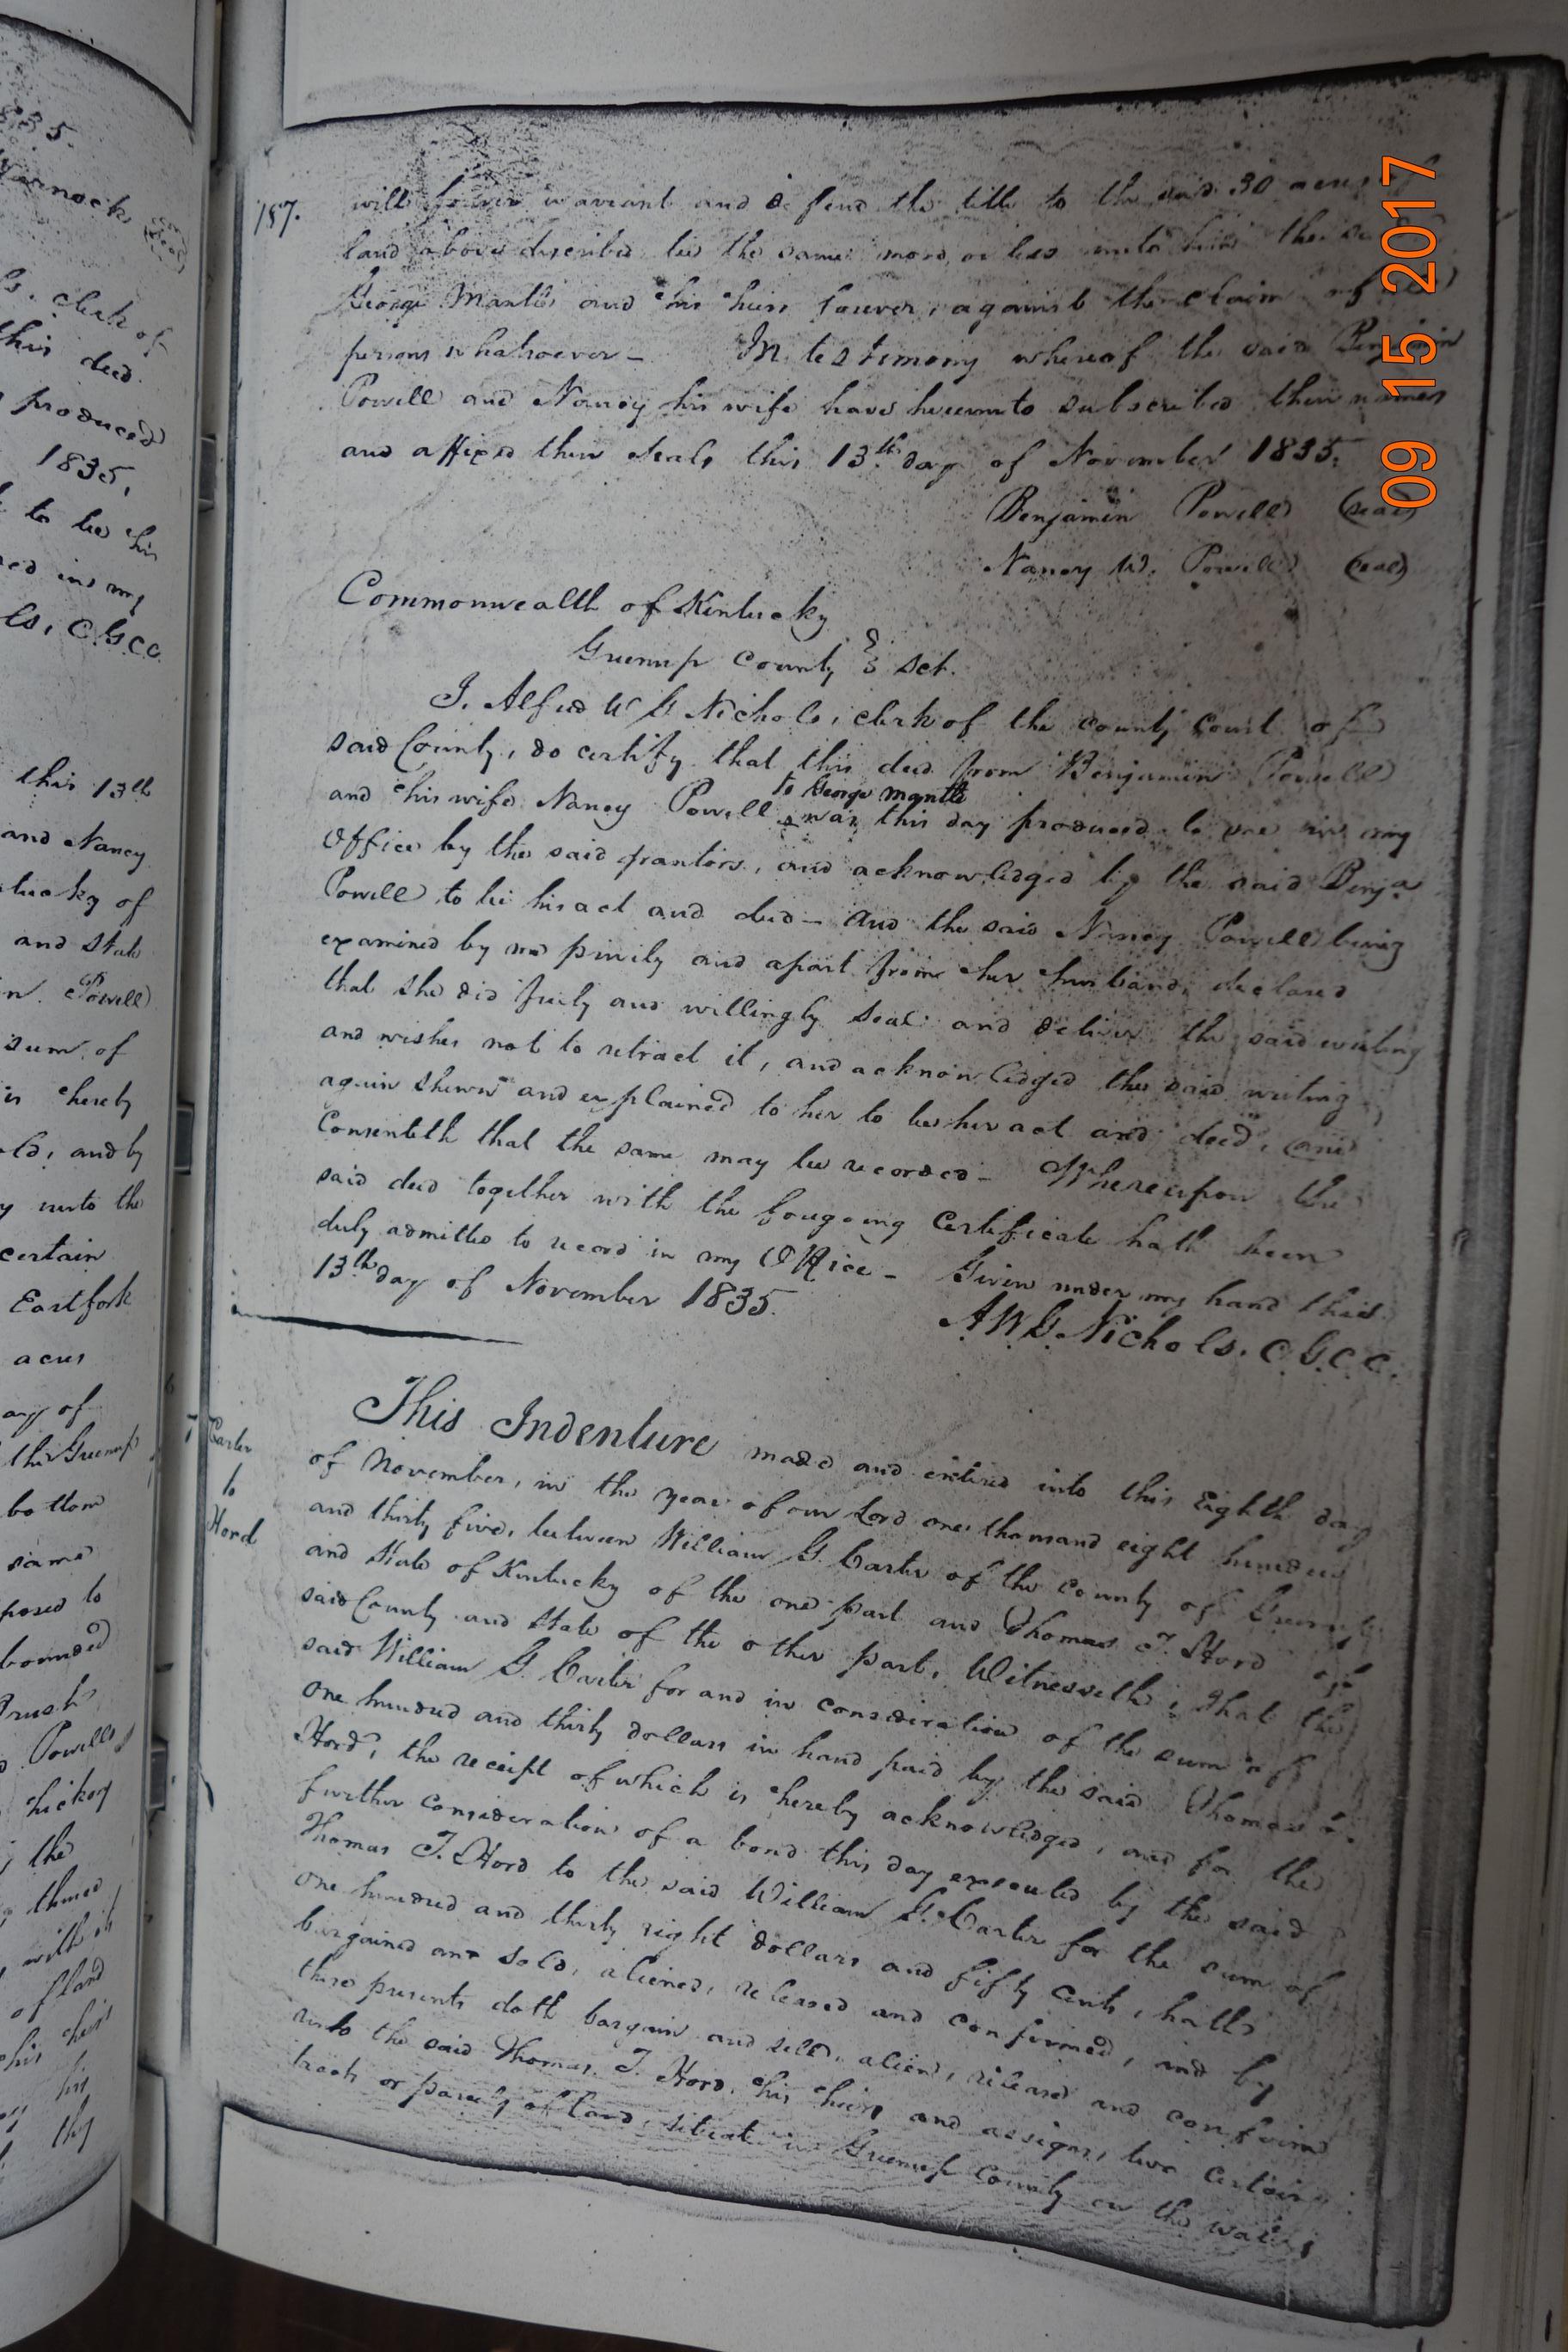 835.
Warnock (seal)
clerk of
this deed
produced
1835,
to be his
ed in my
ls, C.G.C.C.
this 13th
and Nancy
tucky of
and State
n. Powell
sum of
is hereby
ld, and by
unto the
certain
East fork
acres
of
the Greenup
bottom
same
posed to
bounded
Brush
Powells
hickory
the
thence
with it
of land
his heirs
his
they
157.
will forever warrant and defend the title to the said 30 acres of
land above described be the same more or less unto him the said
George Mantle and his heirs forever, against the claim of all
persons whatsoever - In testimony whereof the said Benjamin
Powell and Nancy his wife have hereunto subscribed their names
and affixed their seals this 13th day of November 1835.
Benjamin Powell (seal)
Nancy W. Powell (seal)
Commonwealth of Kentucky
Greenup County } Sct.
I, Alfred W G Nichols, clerk of the county Court of
said County, do certify that this deed from Benjamin Powell
to George Mantle
and his wife Nancy Powell ^ was this day produced to me in my
Office by the said grantors, and acknowledged by the said Benja
Powell to be his act and deed - And the said Nancy Powell being
examined by me privily and apart from her husband, declared
that she did freely and willingly seal and deliver the said writing
and wishes not to retract it, and acknowledged the said writing
again shewn and explained to her to be her act and deed, and
Consenteth that the same may be recorded - Whereupon the
said deed together with the foregoing Certificate hath been
duly admitted to record in my Office - Given under my hand this
13th day of November 1835.
A W G. Nichols. C.G.C.C.
Carter
to
Hord
This Indenture made and entered into this Eighth day
of November, in the year of our Lord one thousand eight hundred
and thirty five, between William G. Carter of the county of Greenup
and State of Kentucky of the one part and Thomas T. Hord of
said County and State of the other part, Witnesseth; that the
said William G. Carter for and in consideration of the sum of
one hundred and thirty dollars in hand paid by the said Thomas T.
Hord, the receipt of which is hereby acknowledged, and for the
further consideration of a bond this day executed by the said
Thomas T. Hord to the said William G. Carter for the sum of
one hundred and thirty eight dollars and fifty Cents, hath
bargained and sold, aliened, released and confirmed, and by
these presents doth bargain and sell, alien, release and confirm
unto the said Thomas T. Hord, his heirs and assigns, two certain
tracts or parcels of land, situate in Greenup County on the waters
09 15 2017